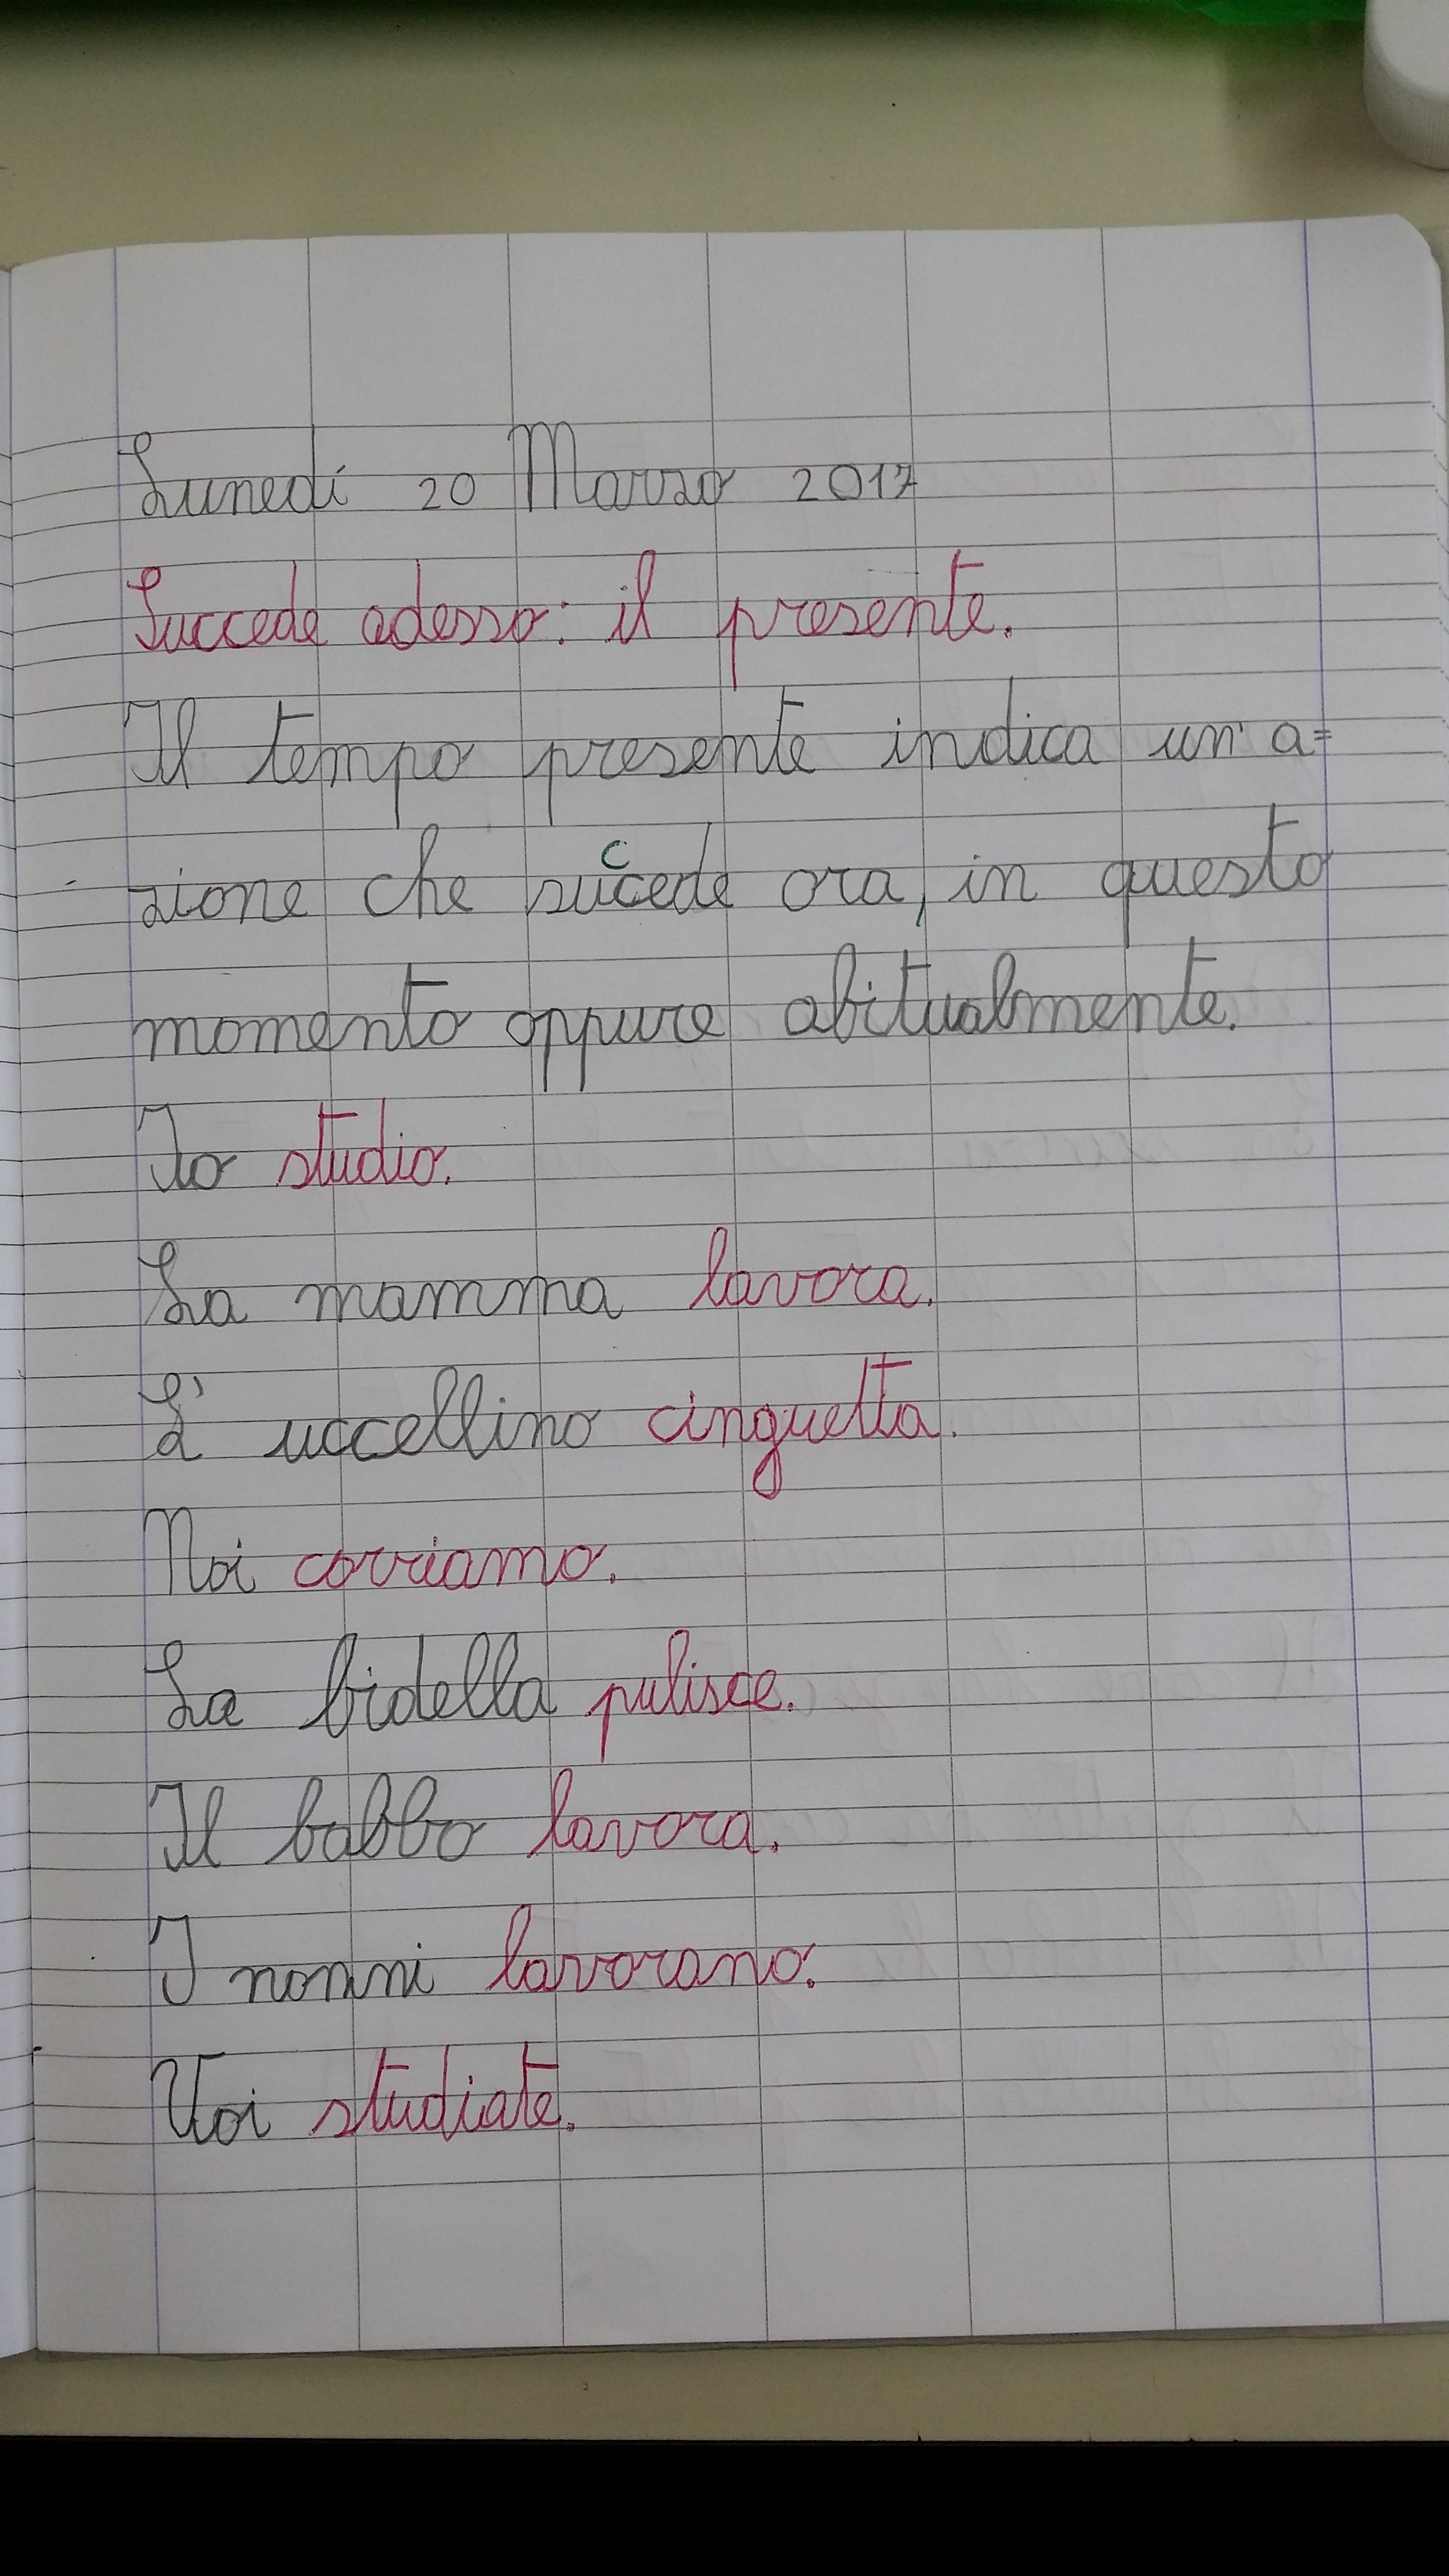 Lunedí 20 Marzo 2017
Succede adesso: il presente.
Il tempo presente indica un'a=
zione che succede ora, in questo
momento oppure abitualmente.
Io studio.
La mamma lavora.
L' uccellino cinguetta.
Noi corriamo.
La bidella pulisce.
Il babbo lavora.
I nonni lavorano.
Voi studiate.